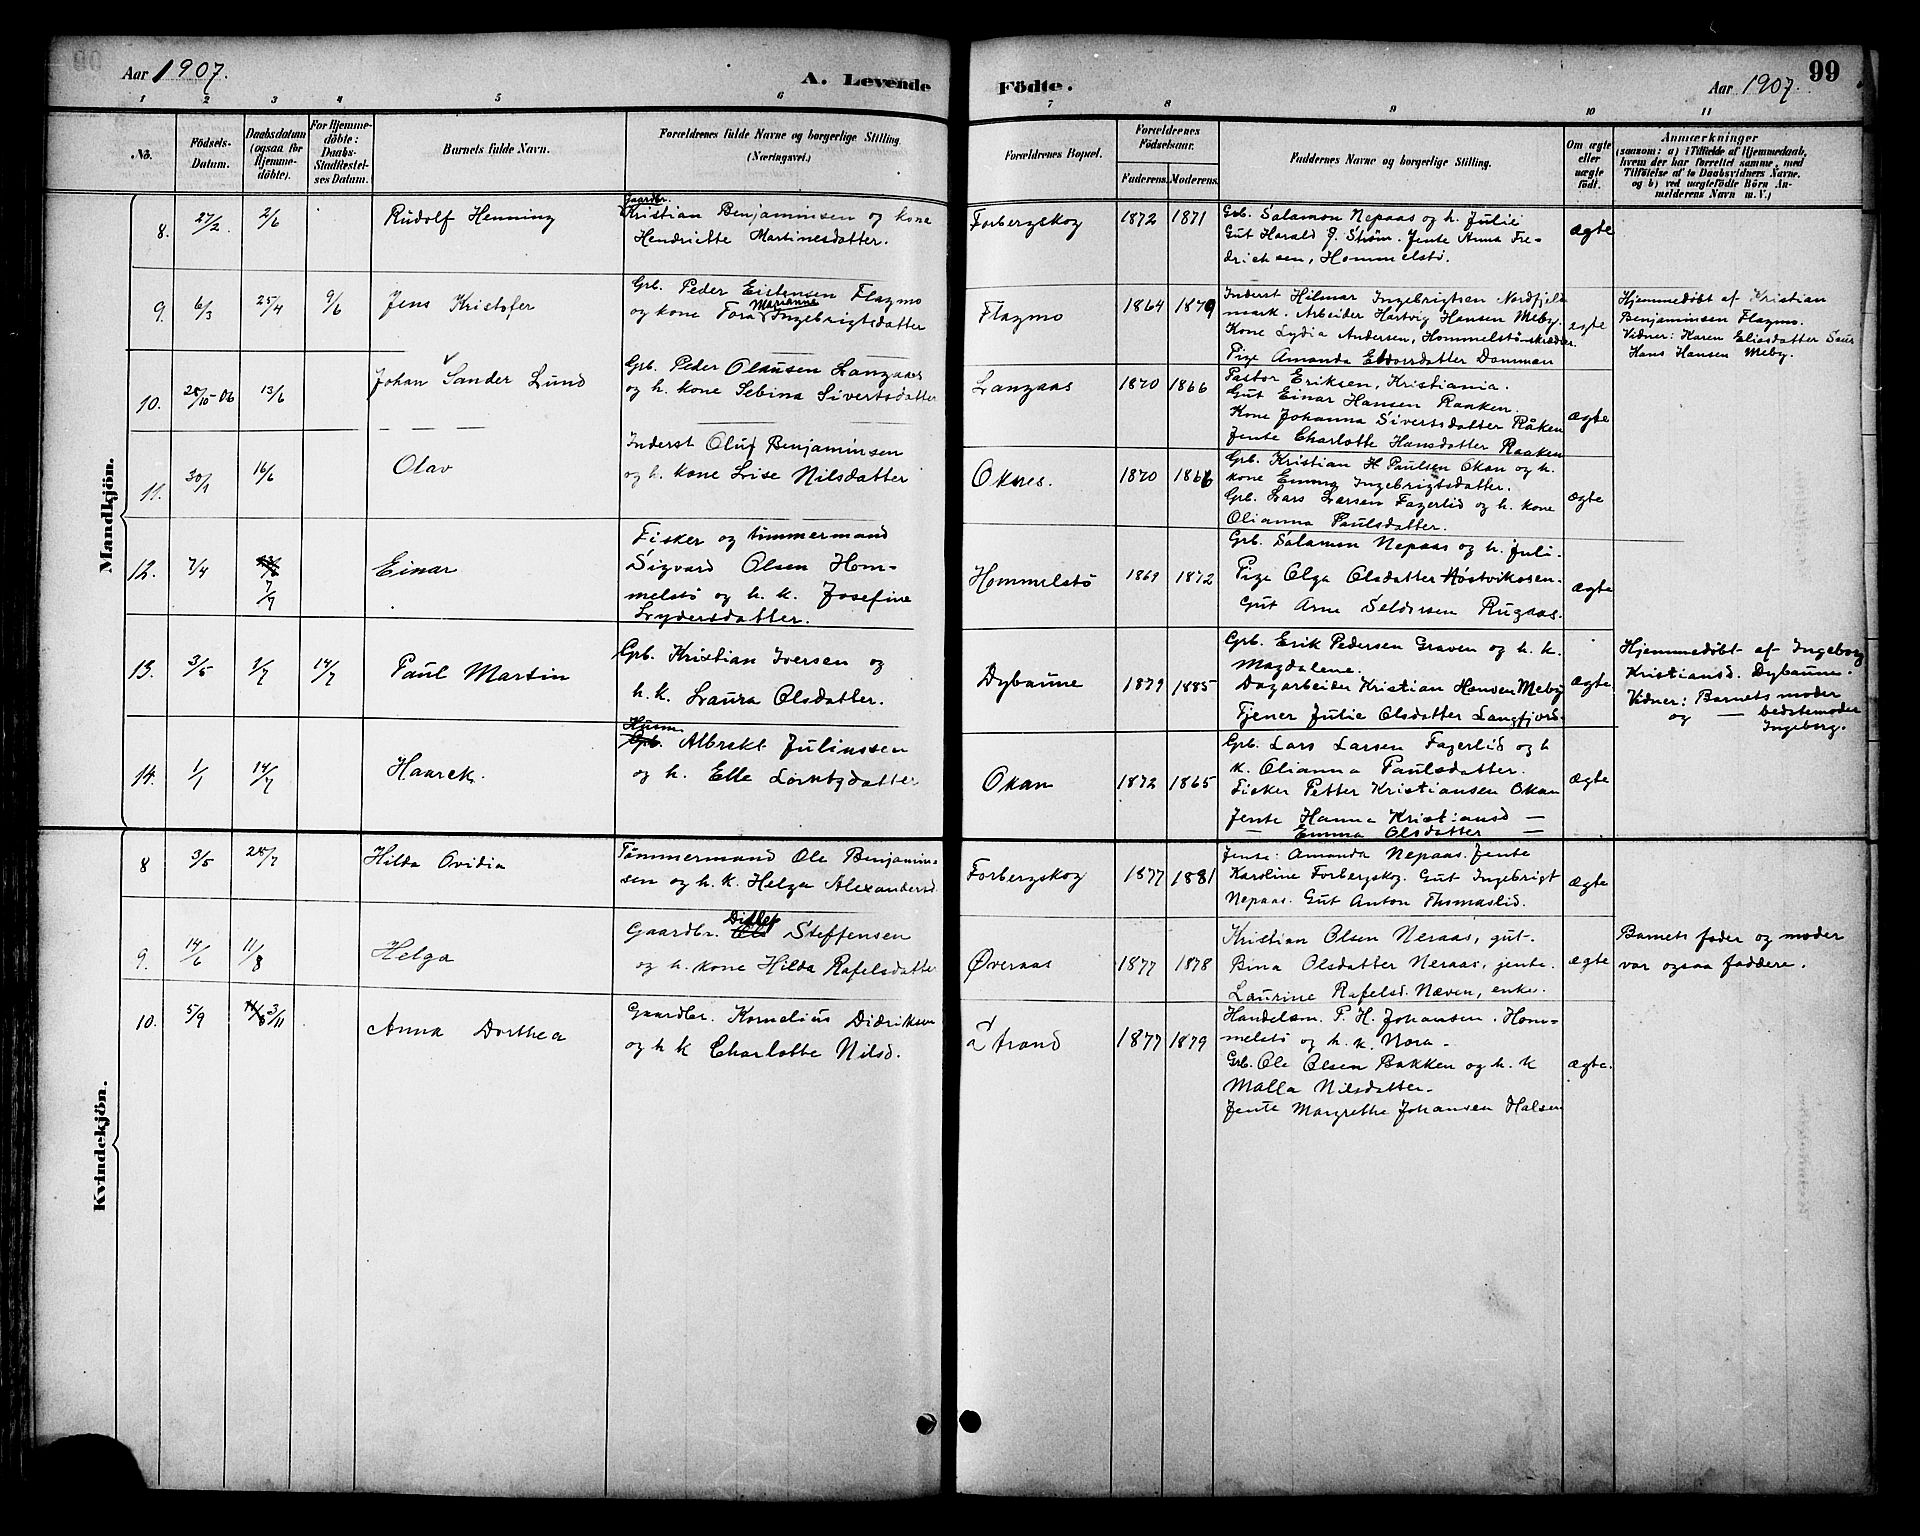 Aar 1907.
A. Levende
Födte.
Aar 1907.
99
1 2 3 4 5 6 7 8 9 10 11
No.
Födsels-
Datum.
Daabsdatum
(ogsaa for
Hjemme-
döbte).
For Hjemme-
döbte:
Daabs-
Stadfæstel-
ses Datum.
Barnets fulde Navn.
Forældrenes fulde Navne og borgerlige Stilling.
(Næringsvei.)
Forældrenes Bopæl.
Forældrenes
Födselsaar.
Faderens. Moderens.
Faddernes Navne og borgerlige Stilling.
Om ægte
eller
uægte
født.
Anmærkninger
(saasom: a) i Tilfælde af Hjemmedaab,
hvem der har forrettet samme, med
Tilföielse af to Daabsvidners Navne,
og b) ved uægtefødte Börn An-
melderens Navn m. V.)
Mandkjön.
8. 27/2 2/6 Rudolf Henning
Gaardbr.
Kristian Benjaminsen og kone
Hendriette Martinesdatter.
Forbergskog 1872 1871
Grb. Salamon Nepaas og h. Julie
Gut Harald J. Strøm. Jente Anna Fre-
driksen, Hommelstø.
ægte
9. 6/3 25/4 9/6 Jens Kristofer
Grb. Peder Eistensen Flagmo
Marianne
og kone Tora Ingebrigtsdatter
Flagmo 1864 1879
Inderst Hilmar Ingebrigtsen Nordfjeld
mark. Arbeider Hartvig Hansen Meby.
Kone Lydia Andersen, Hommelstø
Pige Amanda datter Domman
ægte
Hjemmedøbt af Kristian
Benjaminsen Flagmo.
Vidner: Karen Eliasdatter Saus
Hans Hansen Meby.
10. 28/10-06 13/6 Johan Sander Lund
Grb. Peder Olausen Langaas
og h. kone Sebina Sivertsdatter
Langaas 1870 1866
Pastor Eriksen, Kristiania.
Gut Einar Hansen Raaken.
Kone Johanna Sivertsdatter Råken
Jente Charlotte Hansdatter Raaken
ægte
11. 30/1 16/6 Olav
Inderst Oluf Benjaminsen
og h. kone Lise Nilsdatter
Oknes. 1870 1866
Grb. Kristian H Paulsen Okan og h.
kone Emma Ingebrigtsdatter.
Grb. Lars Larsen Fagerlid og h. kone
Olianna Paulsdatter.
ægte
12. 7/4 7/9 Einar
Fisker og tømmermand
Sigvard Olsen Hom-
melstø og h. k. Josefine
Lydersdatter.
Hommelstø 1869 1872
Grb. Salamon Nepaas og h. Juli-
Pige Olga Olsdatter Høstvikosen-
Gut Arne Seldersen Rugaas.
ægte
13. 3/5 1/7 14/7 Paul Martin
Grb. Kristian Iversen og
h. k. Laura Olsdatter.
Dybaune 1879 1885
Grb. Erik Pedersen Graven og h. k.
Magdalene.
Dagarbeider Kristian Hansen Meby
Tjener Julie Olsdatter Langfjord.
ægte
Hjemmedøbt af Ingeborg
Kristiansd. Dybaune.
Vidner: Barnets moder
og — bedstemoder
Ingeberg.
14. 1/1 14/7 Haarek.
Husm.
Grb. Albrekt Julinssen
og h. Elle
Okan 1872 1865
Grb. Lars Larsen Fagerlid og h
k. Olianna Paulsdatter.
Fisker Petter Kristiansen Okan
Jente Hanna Kristiansd —
— Emma Olsdatter —
ægte
Kvindekjön.
8 3/5 28/7 Hilda Ovidia
Tømmermand Ole Benjamin-
sen og h. k. Helga Alexandersd.
Forbergskog 1877 1881
Jente: Amanda Nepaas. Jente
Karoline Forbergskog. Gut Ingebrigt
Nepaas. Gut Anton Thomaslid.
ægte
9. 14/6 11/8 Helga
Ditlef
Gaardbr. Steffensen
og h. kone Hilda Rafelsdatter
Øveraas 1877 1878
Kristian Olsen Neraas, gut-
Bina Olsdatter Neraas, jente.
Laurine Rafelsd. Næven, enke.
ægte
Barnets fader og moder
var ogsaa faddere.
10. 5/9 3/11 Anna Dorthea
Gaardbr. Kornelius Didriksen
og h k Charlotte Nilsd.
Strand 1877 1879
Handelsm. P. H. Johansen. Hom-
melstø og h. k. Nora-
Grb. Ole Olsen Bakken og h. k
Malla Nilsdatter-
Jente Margrethe Johansen Halsen
ægte.